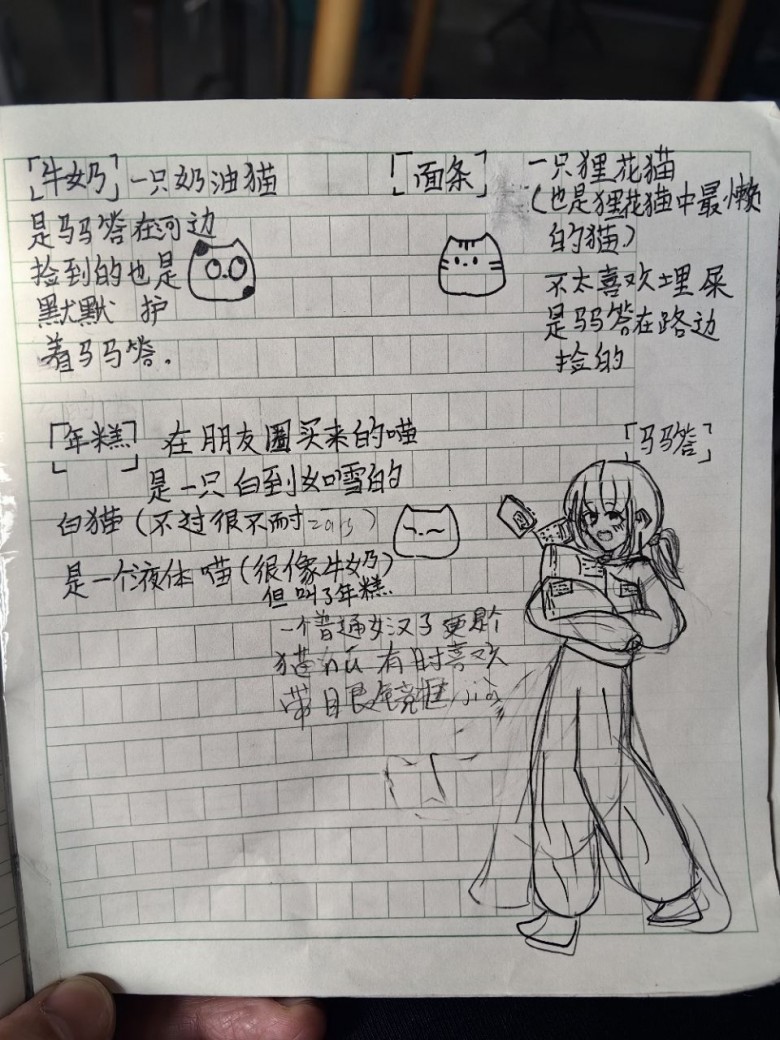 「牛奶」一只奶油猫
是马马答在河边
捡到的也是
默默 护
着马马答.
「面条」
一只狸花猫
(也是狸花猫中最懒
的猫)
不太喜欢埋屎
是马马答在路边
捡的
「年糕」 在朋友圈买来的喵
是一只白到如雪的
白猫 (不过很不耐 )
是一个液体喵(很像牛奶)
但叫了年糕.
一个普通女汉子更是个
猫 有时喜欢
带目艮镜框
「马马答」